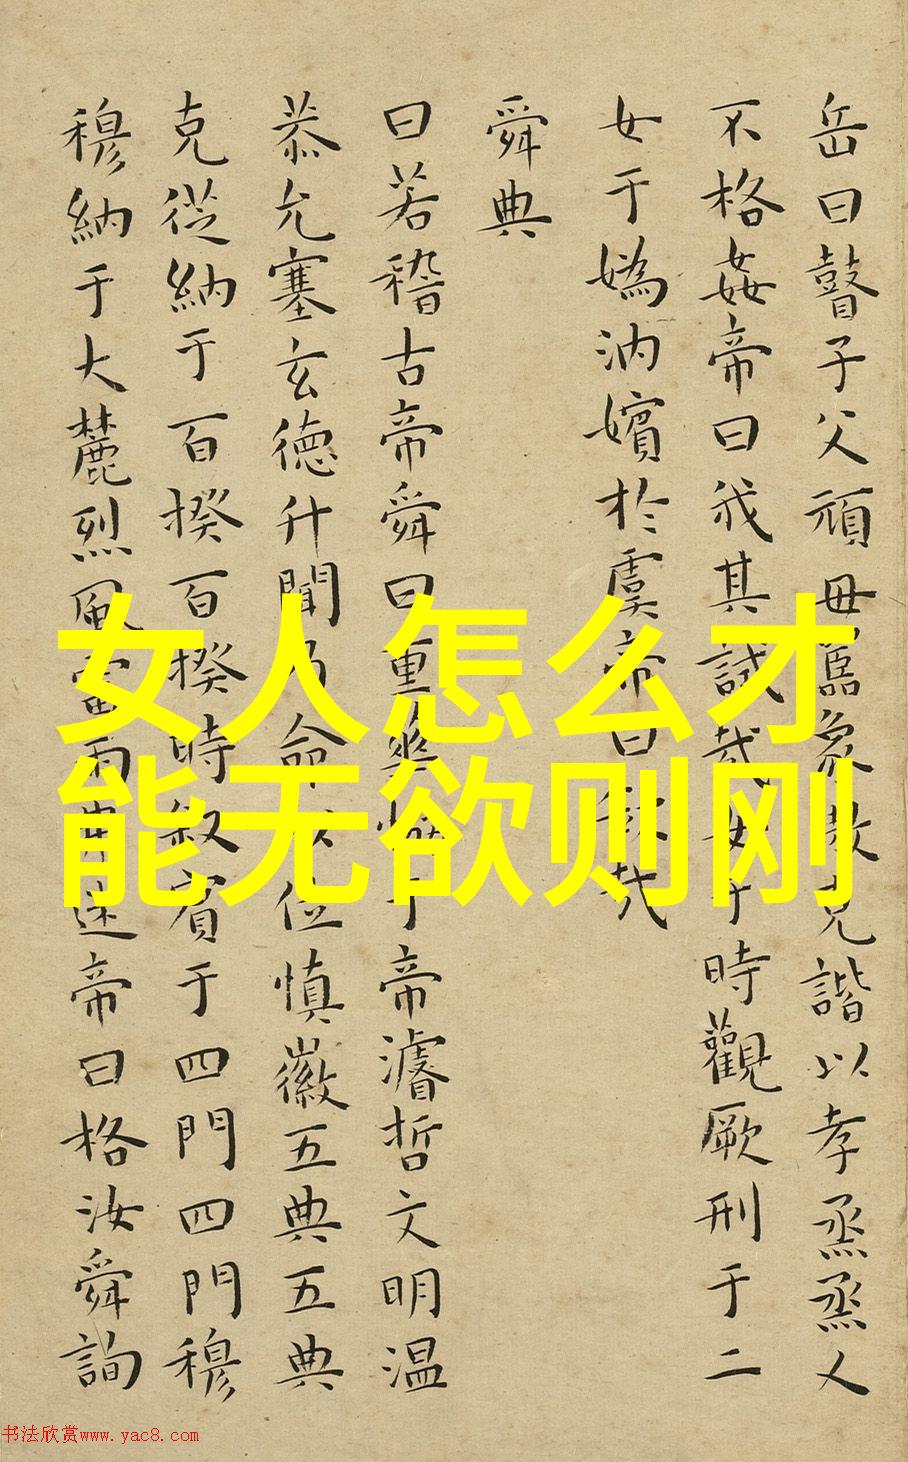 岳曰瞽子父頑母嚚象敖克諧以孝烝烝乂
不格姦帝曰我其試哉女于時觀厥刑于二
女于媯汭嬪於虞帝曰欽哉
舜典
曰若稽古帝舜曰重華恊于帝濬哲文明温
恭允塞玄德升聞乃命以位慎徽五典五典
克從納于百揆百揆時敘賓于四門四門穆
穆納于大麓烈風雷雨弗迷帝曰格汝舜詢
女人怎么才
能无欲则刚
书法欣赏www.yac8.com